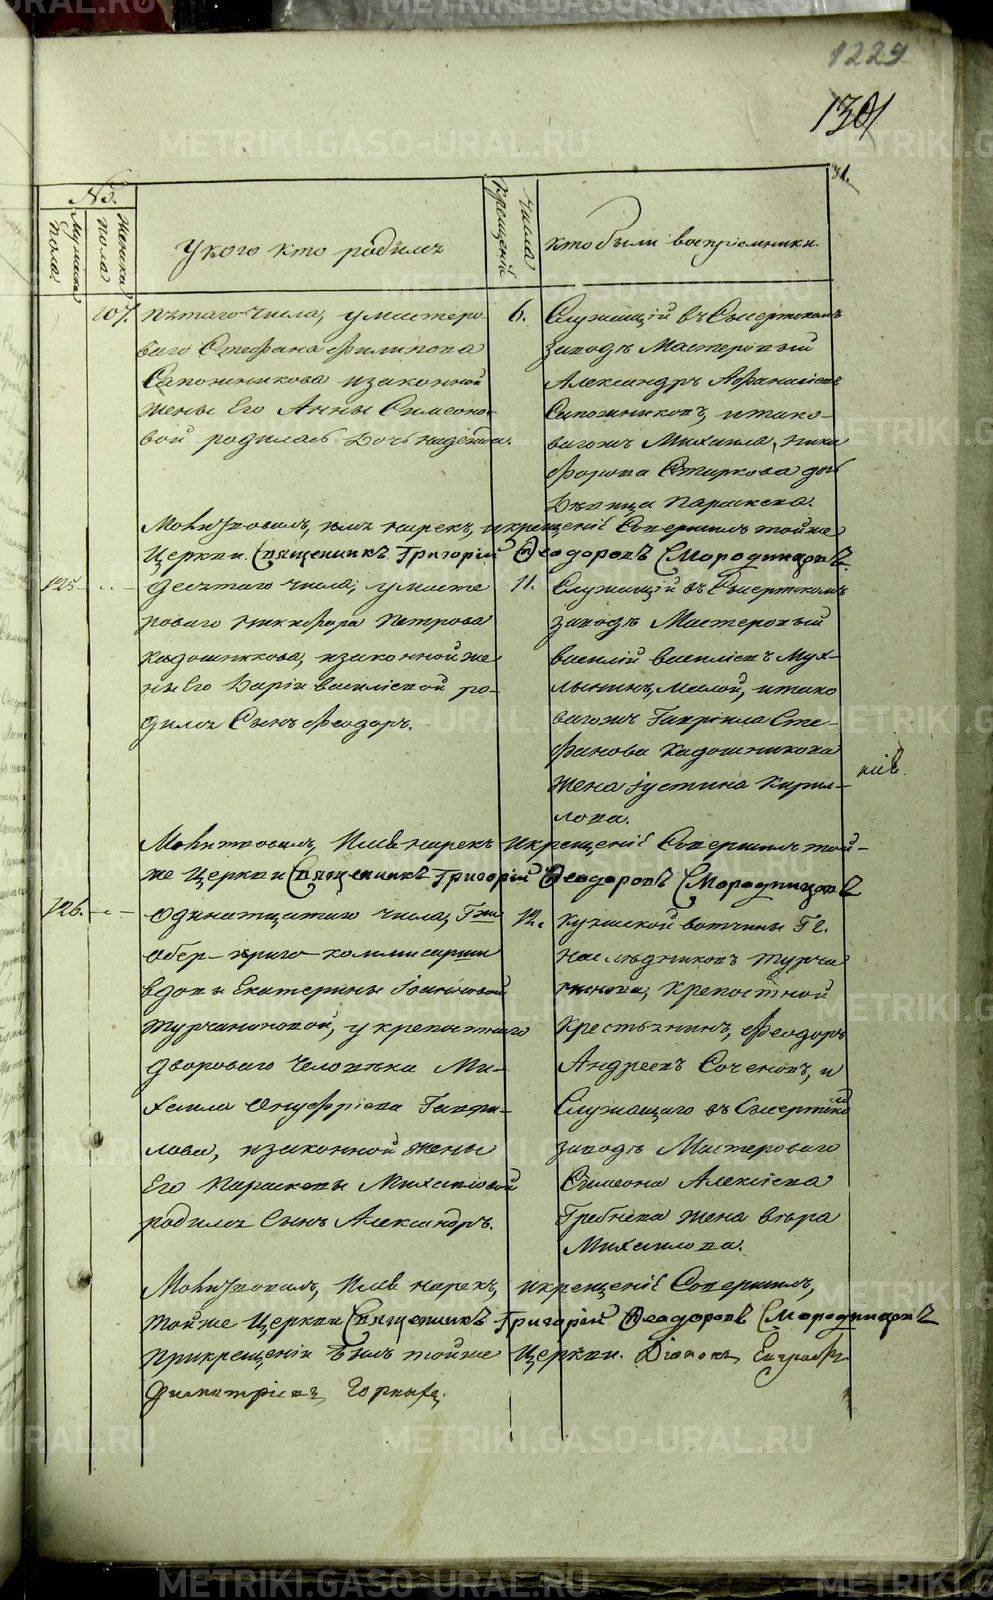 1229
1301
31.
№.
Мужеска пола.
Женска пола
У кого кто родился
Числа крещений
кто были восприемники.
107. пятаго числа, у мастеро-
ваго Стефана Филипова
Сапожникова и законной
жены Его Анны Симеоно-
вой родилась Дочь Надежда.
6. Служащий въ Сысертскомъ
заводѣ Мастеровый
Александръ Афанасіевъ
Сапожниковъ, и тако-
вагожъ Михаила Ники
форова Стиркова дочь
Дѣвица Параскева.
Молитвовалъ, имя нарекъ, и крещеніе Совершилъ тойже
Церкви Священникъ Григорій Ѳеодоровъ Смородинцовъ.
125. десятаго числа, у масте
роваго Никифора Петрова
Кадошникова, и законной же
ны Его Дарьи Василіевой ро-
дился Сынъ Феодоръ.
11. Служащій въ Сысертскомъ
заводѣ Мастеровый
Василій Василіевъ Мух-
лынинъ, Малой, и тако
вагожъ Гавріила Сте-
фанова Кадошникова
жена Іустина Кирил-
лова.
Молитвовалъ, Имя нарекъ и крещеніе Совершилъ той-
же Церкви Священникъ Григорій Ѳеодоровъ Смородинцовъ
126. Одинатцатаго числа, Гжи
Обер-кригс-коммисарши
вдовы Екатерины Іоанновой
Турчаниновой, у крепостнаго
двороваго человѣка Ми-
хаила Онуфріева Панфи-
лова, и законной жены
Его Параскевы Михайловой
родился Сынъ Александръ.
12. вотчины Гг.
Наслѣдниковъ Турча
нинова, крепостной
Крестьянинъ, Феодоръ
Андреевъ Соченовъ, и
Служащаго въ Сысертской
заводѣ Мастероваго
Симеона Алексіева
Гребнева жена Вѣра
Михайлова.
Молитвовалъ, Имя нарекъ, и крещеніе Совершилъ,
тойже Церкви Священникъ Григорій Ѳеодоровъ Смородинцовъ
При крещеніи былъ тойже Церкви Діаконъ, Евграфъ
Димитріевъ Горныхъ.
METRIKI.GASO-URAL.RU